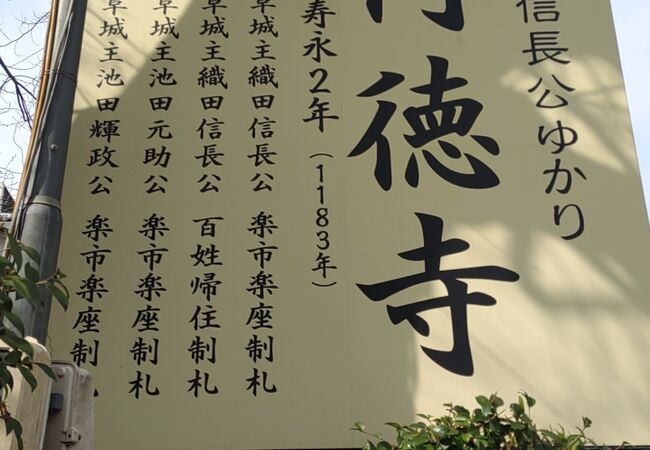 信長公ゆかり
徳寺
寿永2年(1183年)
阜城主織田信長公 楽市楽座制札
阜城主織田信長公 百姓帰住制札
阜城主池田元助公 楽市楽座制札
阜城主池田輝政公 楽市楽座制